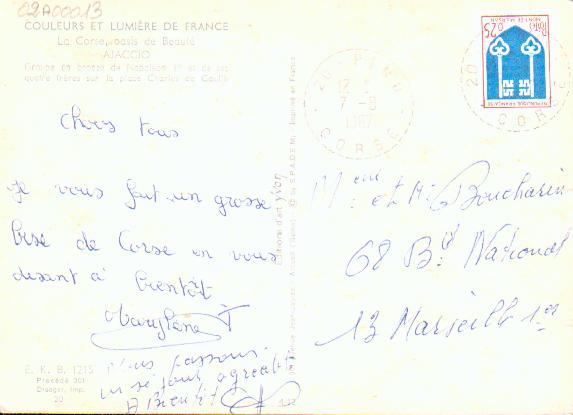 02A00013
COULEURS ET LUMIÈRE DE FRANCE
La Corse, oasis de Beauté
AJACCIO
Groupe en bronze de Napoléon 1er et de ses
quatre frères sur la place Charles de Gaulle
chers tous
je vous fait un grosse
bise de Corse en vous
disant à bientôt
nous passons
un séjour agréable
A Bientôt
E. K. B. 1215
Procédé 301
Draeger, Imp.
20
Editions d'art yvon
© by S.P.A.D.E.M.
20 PINO
12 H
7 - 8
1967
CORSE
0,25
MONT-DE-MARSAN
REPUBLIQUE FRANCAISE
20
COR
Meme et Mr Boucharin
68 Bd National
13 Marseille 1er